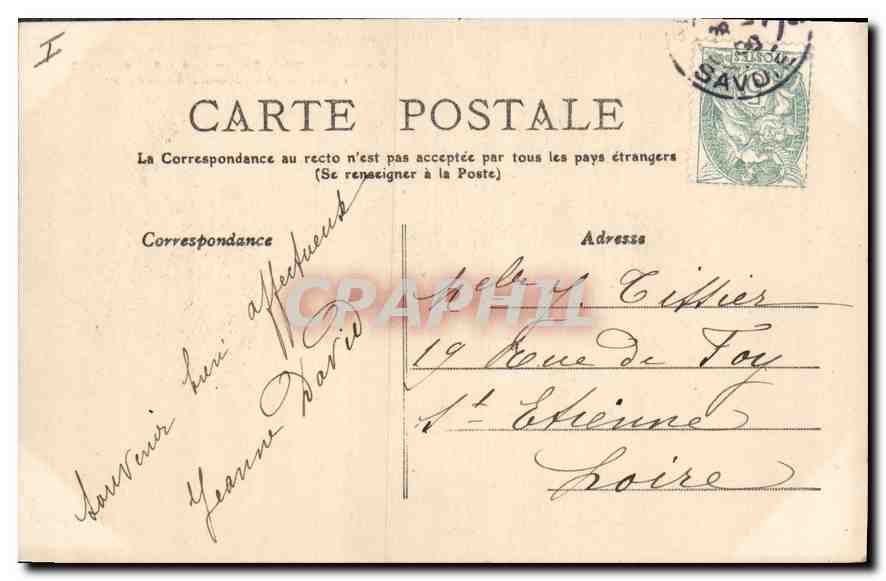 I
POSTES
SAVOI
CARTE POSTALE
La Correspondance au recto n'est pas acceptée par tous les pays étrangers
(Se renseigner à la Poste)
Correspondance
Adresse
Souvenir bien affectueux
Jeanne David
CPAPHIL
Tissier
19 Rue de Foy
St Etienne
Loire